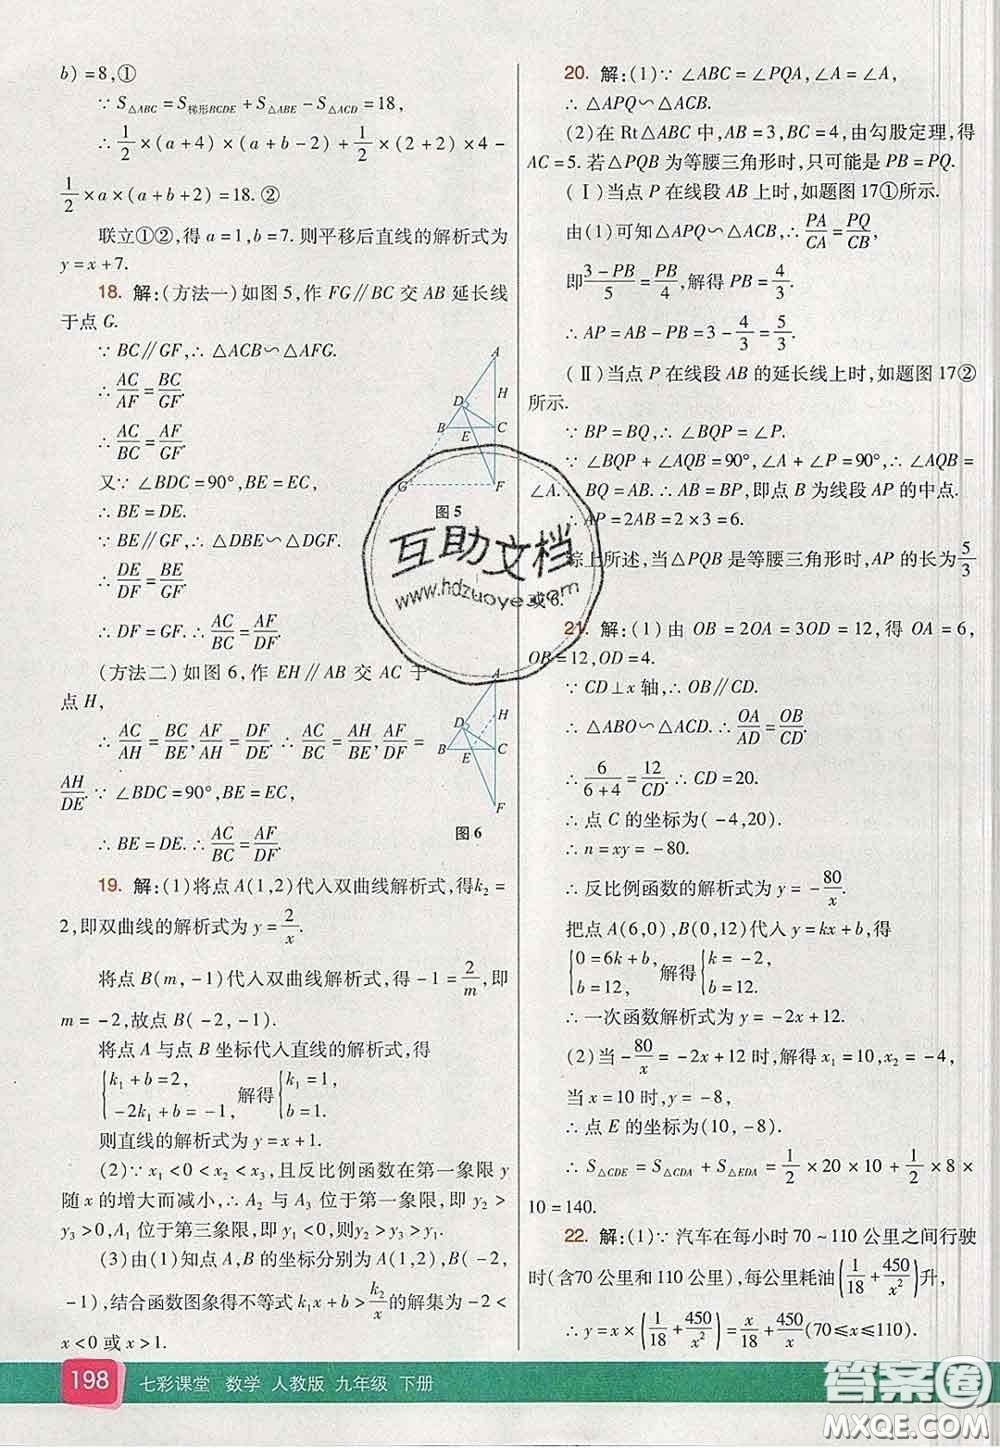 b)=8,①
∵ S△ABC=S梯形BCDE+S△ABE-S△ACD=18,
∴ 1/2×(a+4)×(a+b-2)+1/2×(b+2)×4-
1/2×a×(a+b+2)=18.②
联立①②,得a=1,b=7.则平移后直线的解析式为
y=x+7.
18. 解:(方法一)如图5,作FG∥BC交AB延长线
于点G.
∵ BC∥GF,∴ △ACB∽△AFG.
∴ AC/AF=BC/GF.
∴ AC/BC=AF/GF.
又∵ ∠BDC=90°,BE=EC,
∴ BE=DE.
∵ BE∥GF,∴ △DBE∽△DGF.
∴ DE/DF=BE/GF.
∴ DF=GF.∴ AC/BC=AF/DF.
A
H
D
B
E
C
G
F
图5
(方法二)如图6,作EH∥AB交AC于
点H,
∴ AC/AH=BC/BE,AF/AH=DF/DE.∴ AC/BC=AH/BE,AF/DF=
AH/DE.∵ ∠BDC=90°,BE=EC,
∴ BE=DE.∴ AC/BC=AF/DF.
A
H
D
B
E
C
F
图6
19. 解:(1)将点A(1,2)代入双曲线解析式,得k₂=
2,即双曲线的解析式为y=2/x.
将点B(m,-1)代入双曲线解析式,得-1=2/m,即
m=-2,故点B(-2,-1).
将点A与点B坐标代入直线的解析式,得
{k₁+b=2, -2k₁+b=-1, 解得{k₁=1, b=1.
则直线的解析式为y=x+1.
(2)∵ x₁<0<x₂<x₃,且反比例函数在第一象限y
随x的增大而减小,∴ A₂与A₃位于第一象限,即y₂>
y₃>0,A₁位于第三象限,即y₁<0,则y₂>y₃>y₁.
(3)由(1)知点A,B的坐标分别为A(1,2),B(-2,
-1),结合函数图象得不等式k₁x+b>k₂/x的解集为-2<
x<0或x>1.
20. 解:(1)∵ ∠ABC=∠PQA,∠A=∠A,
∴ △APQ∽△ACB.
(2)在Rt△ABC中,AB=3,BC=4,由勾股定理,得
AC=5.若△PQB为等腰三角形时,只可能是PB=PQ.
(Ⅰ)当点P在线段AB上时,如题图17①所示.
由(1)可知△APQ∽△ACB,∴ PA/CA=PQ/CB.
即(3-PB)/5=PB/4,解得PB=4/3.
∴ AP=AB-PB=3-4/3=5/3.
(Ⅱ)当点P在线段AB的延长线上时,如题图17②
所示.
∵ BP=BQ,∴ ∠BQP=∠P.
∵ ∠BQP+∠AQB=90°,∠A+∠P=90°,∴ ∠AQB=
∠A.∴ BQ=AB.∴ AB=BP,即点B为线段AP的中点.
∴ AP=2AB=2×3=6.
综上所述,当△PQB是等腰三角形时,AP的长为5/3
或6.
21. 解:(1)由OB=2OA=3OD=12,得OA=6,
OB=12,OD=4.
∵ CD⊥x轴,∴ OB∥CD.
∴ △ABO∽△ACD.∴ OA/AD=OB/CD.
∴ 6/(6+4)=12/CD.∴ CD=20.
∴ 点C的坐标为(-4,20).
∴ n=xy=-80.
∴ 反比例函数的解析式为y=-80/x.
把点A(6,0),B(0,12)代入y=kx+b,得
{0=6k+b, b=12, 解得{k=-2, b=12.
∴ 一次函数解析式为y=-2x+12.
(2)当-80/x=-2x+12时,解得x₁=10,x₂=-4,
当x=10时,y=-8,
∴ 点E的坐标为(10,-8).
∴ S△CDE=S△CDA+S△EDA=1/2×20×10+1/2×8×
10=140.
22. 解:(1)∵ 汽车在每小时70~110公里之间行驶
时(含70公里和110公里),每公里耗油(1/18+450/x²)升,
∴ y=x×(1/18+450/x²)=x/18+450/x(70≤x≤110).
互助文档
www.hdzuoye.com
198 七彩课堂 数学 人教版 九年级 下册
答案圈
MXQE.COM